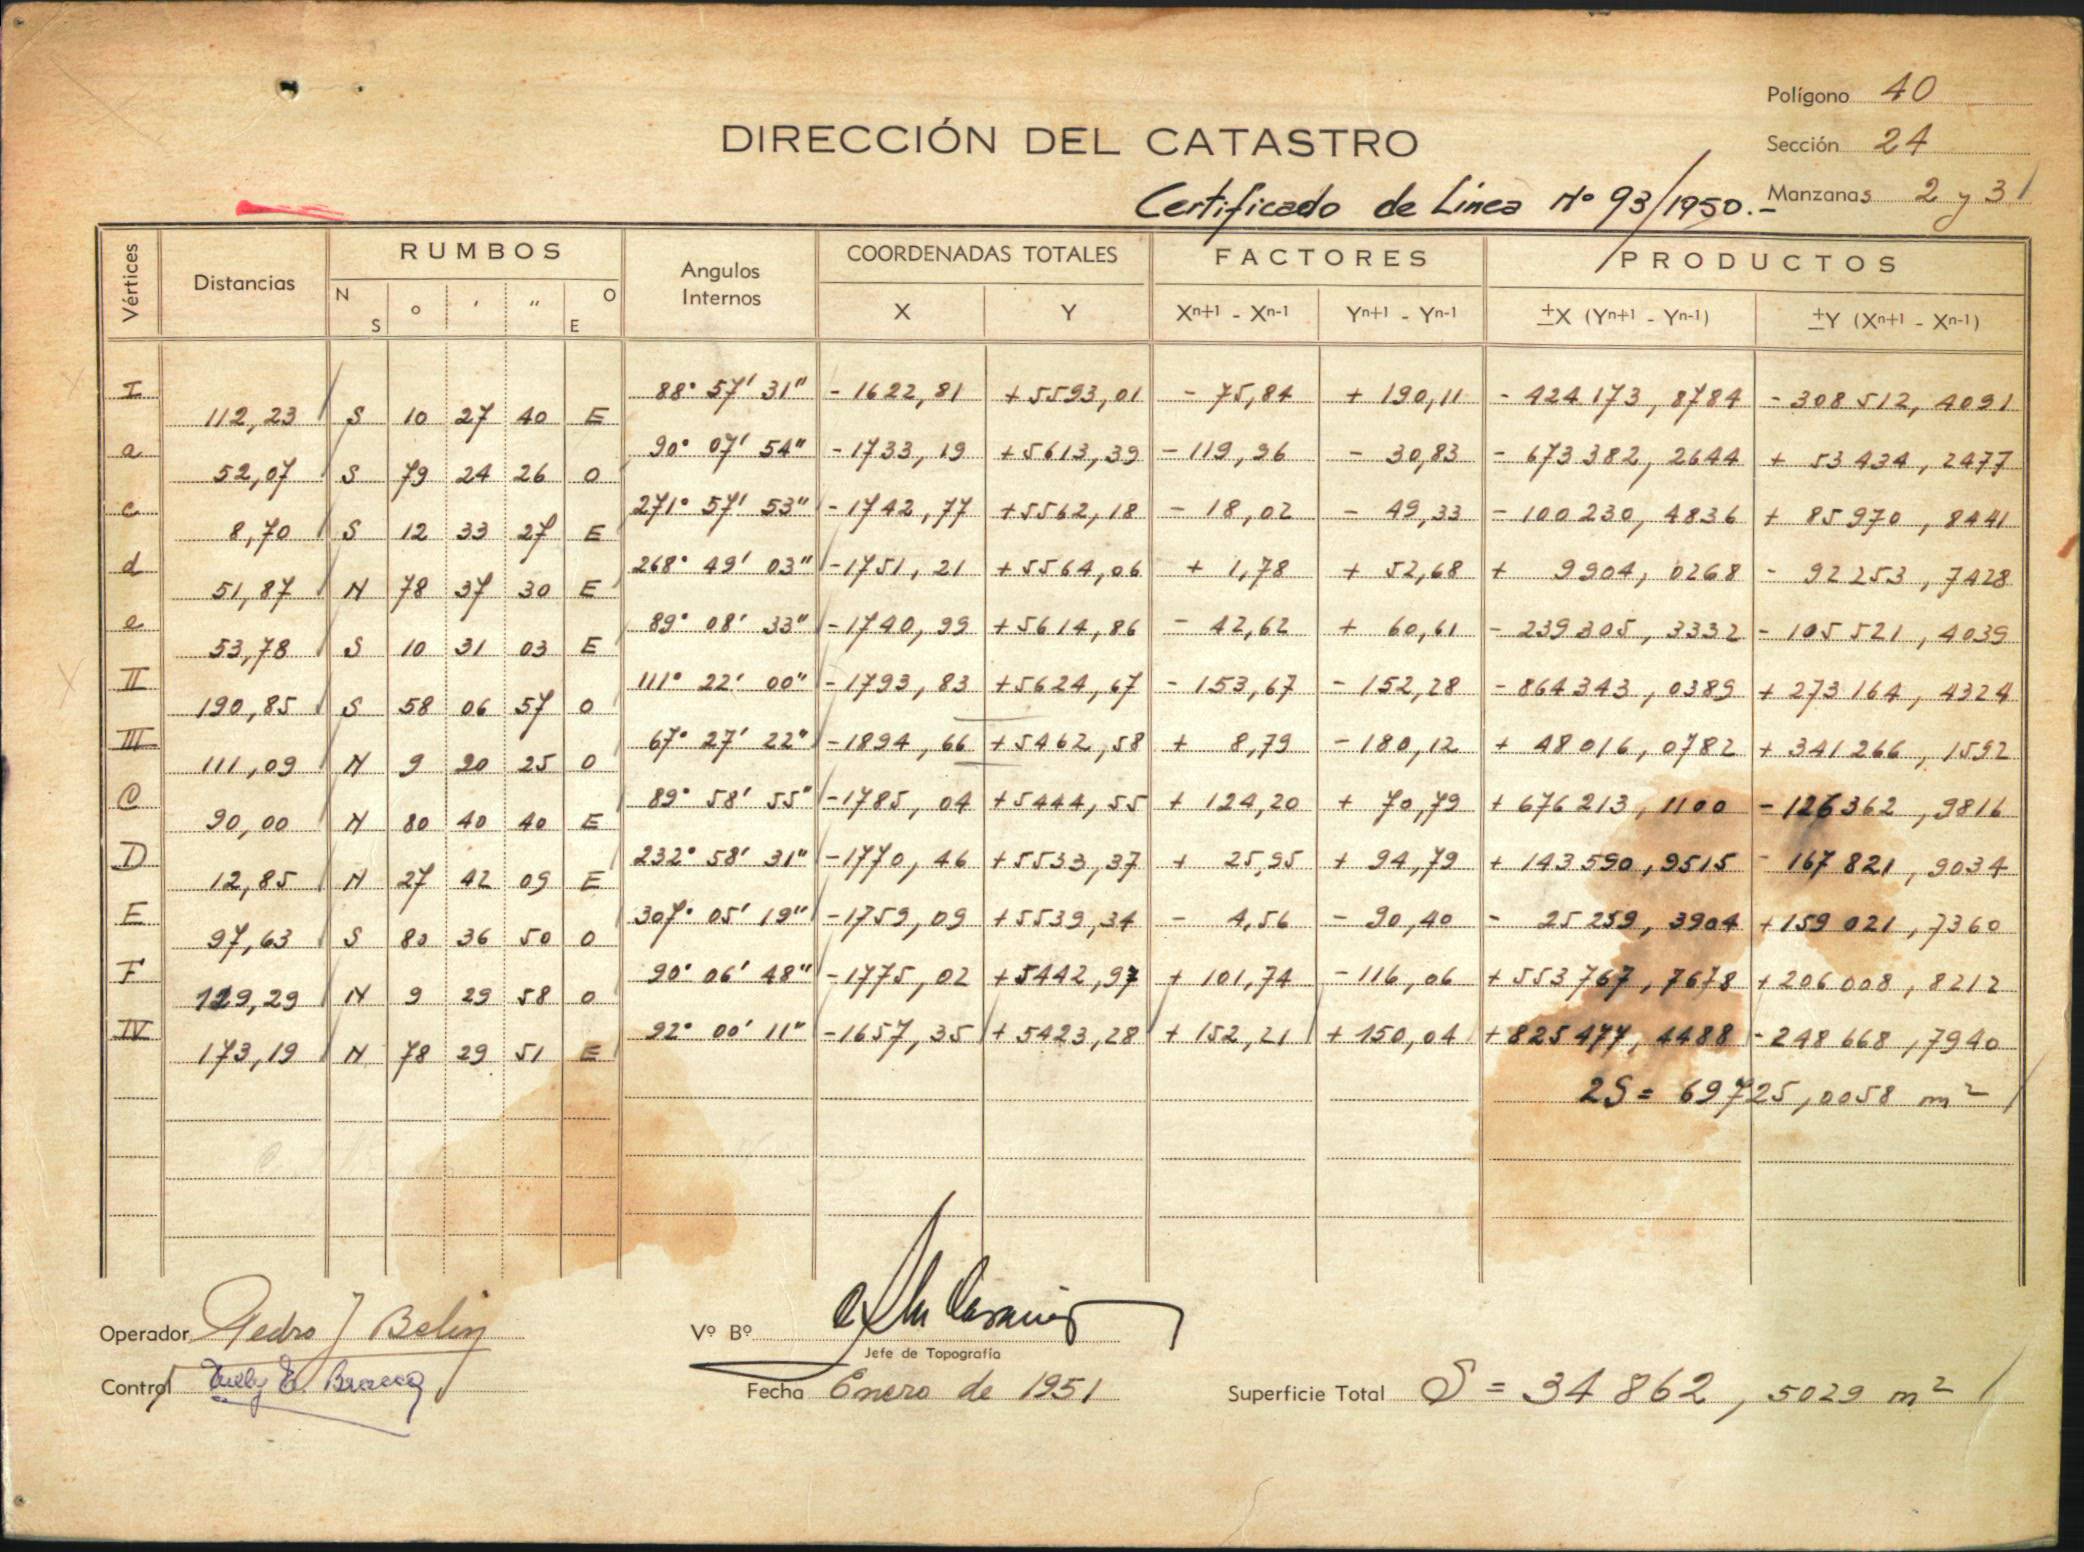 Polígono 40
DIRECCIÓN DEL CATASTRO
Sección 24
Certificado de Línea Nº 93/1950.-
Manzanas 2 y 3
Vértices Distancias RUMBOS Angulos Internos COORDENADAS TOTALES FACTORES PRODUCTOS
N S ° ' " O E X Y Xn+1 - Xn-1 Yn+1 - Yn-1 ±X (Yn+1 - Yn-1) ±Y (Xn+1 - Xn-1)
I 88° 57' 31" - 1622,81 + 5593,01 - 75,84 + 190,11 - 424173,8784 - 308512,4091
112,23 S 10 27 40 E
a 90° 07' 54" - 1733,19 + 5613,39 - 119,96 - 30,83 - 673382,2644 + 53434,2477
52,07 S 79 24 26 O
c 271° 57' 53" - 1742,77 + 5562,18 - 18,02 - 49,33 - 100230,4836 + 85970,8441
8,70 S 12 33 27 E
d 268° 49' 03" - 1751,21 + 5564,06 + 1,78 + 52,68 + 9904,0268 - 92253,7428
51,87 N 78 37 30 E
e 89° 08' 33" - 1740,99 + 5614,86 - 42,62 + 60,61 - 239305,3332 - 105521,4039
53,78 S 10 31 03 E
II 111° 22' 00" - 1793,83 + 5624,67 - 153,67 - 152,28 - 864343,0389 + 273164,4324
190,85 S 58 06 57 O
III 67° 27' 22" - 1894,66 + 5462,58 + 8,79 - 180,12 + 48016,0782 + 341266,1592
111,09 N 9 20 25 O
C 89° 58' 55" - 1785,04 + 5444,55 + 124,20 + 70,79 + 676213,1100 - 126362,9816
90,00 N 80 40 40 E
D 232° 58' 31" - 1770,46 + 5533,37 + 25,95 + 94,79 + 143590,9515 - 167821,9034
12,85 N 27 42 09 E
E 307° 05' 19" - 1759,09 + 5539,34 - 4,56 - 90,40 - 25259,3904 + 159021,7360
97,63 S 80 36 50 O
F 90° 06' 48" - 1775,02 + 5442,97 + 101,74 - 116,06 + 553767,7678 + 206008,8212
119,29 N 9 29 58 O
IV 92° 00' 11" - 1657,35 + 5423,28 + 152,21 + 150,04 + 825477,4488 - 248668,7940
173,19 N 78 29 51 E
2S = 69725,0058 m²
Operador Pedro J Belin
Vº Bº
Jefe de Topografía
Control
Fecha Enero de 1951
Superficie Total S = 34862,5029 m²